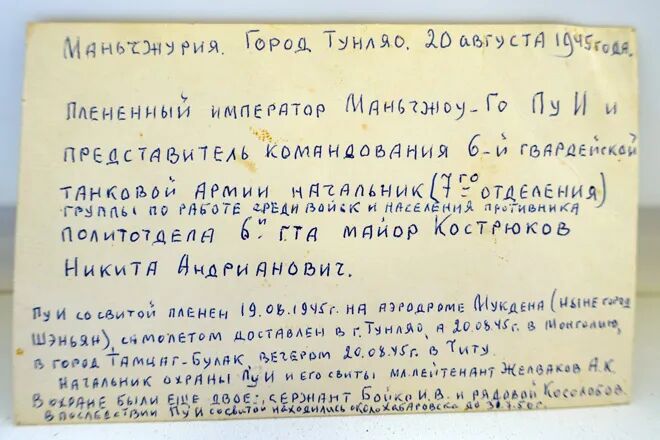 Маньчжурия. Город Тунляо. 20 августа 1945 года.
Плененный император Маньчжоу-Го Пу И и
представитель командования 6-й гвардейской
танковой Армии начальник (7го отделения)
группы по работе среди войск и населения противника
политотдела 6й гта майор Кострюков
Никита Андрианович.
Пу И со свитой пленен 19.08.1945г. на аэродроме Мукдена (ныне город
Шэньян), самолетом доставлен в г. Тунляо, а 20.08.45г. в Монголию,
в город Тамцаг-Булак, вечером 20.08.45г. в Читу.
Начальник охраны Пу И и его свиты мл. лейтенант Желваков А.К.
В охране были еще двое: сержант Бойко И.В. и рядовой Косолобов.
В последствии Пу И со свитой находились около Хабаровска до 50г.